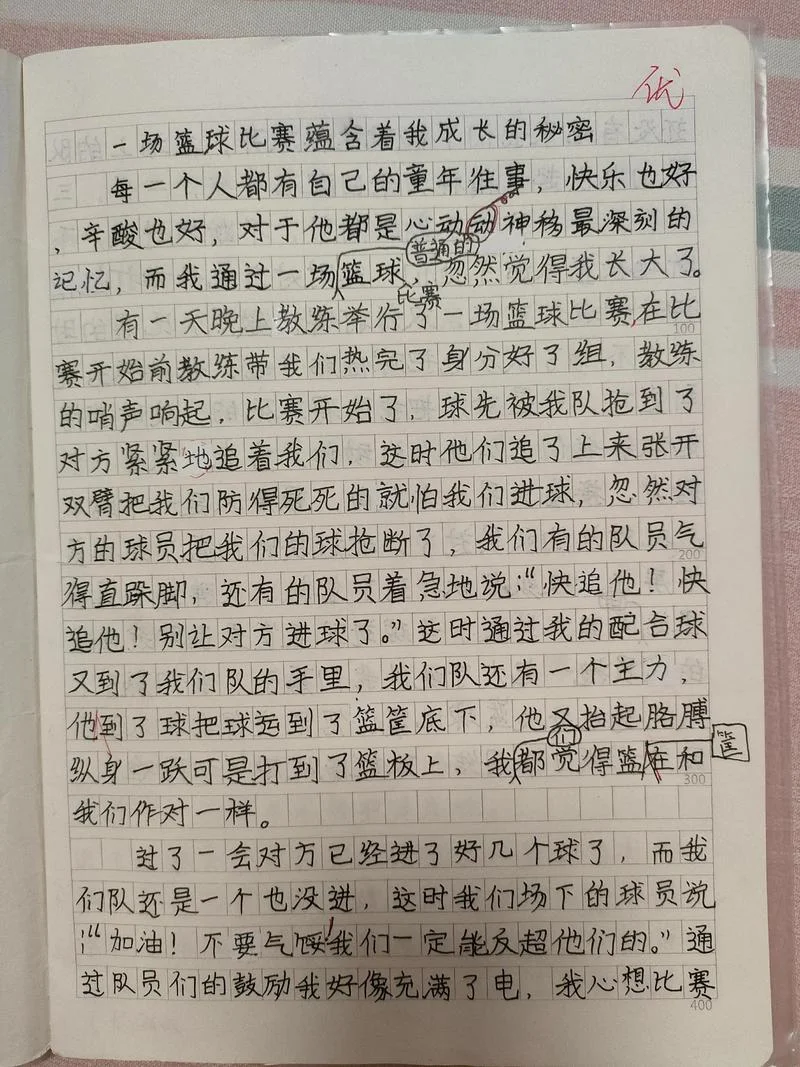 优
一场篮球比赛蕴含着我成长的秘密
每一个人都有自己的童年往事，快乐也好
，辛酸也好，对于他都是心动动神移最深刻的
普通的
记忆，而我通过一场篮球，忽然觉得我长大了。
比赛
有一天晚上教练举行了一场篮球比赛，在比
100
赛开始前教练带我们热完了身分好了组，教练
的哨声响起，比赛开始了，球先被我队抢到了
对方紧紧地追着我们，这时他们追了上来张开
双臂把我们防得死死的就怕我们进球，忽然对
方的球员把我们的球抢断了，我们有的队员气
200
得直跺脚，还有的队员着急地说：“快追他！快
追他！别让对方进球了。”这时通过我的配合球
又到了我们队的手里，我们队还有一个主力，
他到了球把球运到了篮筐底下，他又抬起胳膊
们
筐
纵身一跃可是打到了篮板上，我都觉得篮在和
300
我们作对一样。
过了一会对方已经进了好几个球了，而我
们队还是一个也没进，这时我们场下的球员说
：“加油！不要气馁，我们一定能反超他们的。”通
过队员们的鼓励我好像充满了电，我心想比赛
400